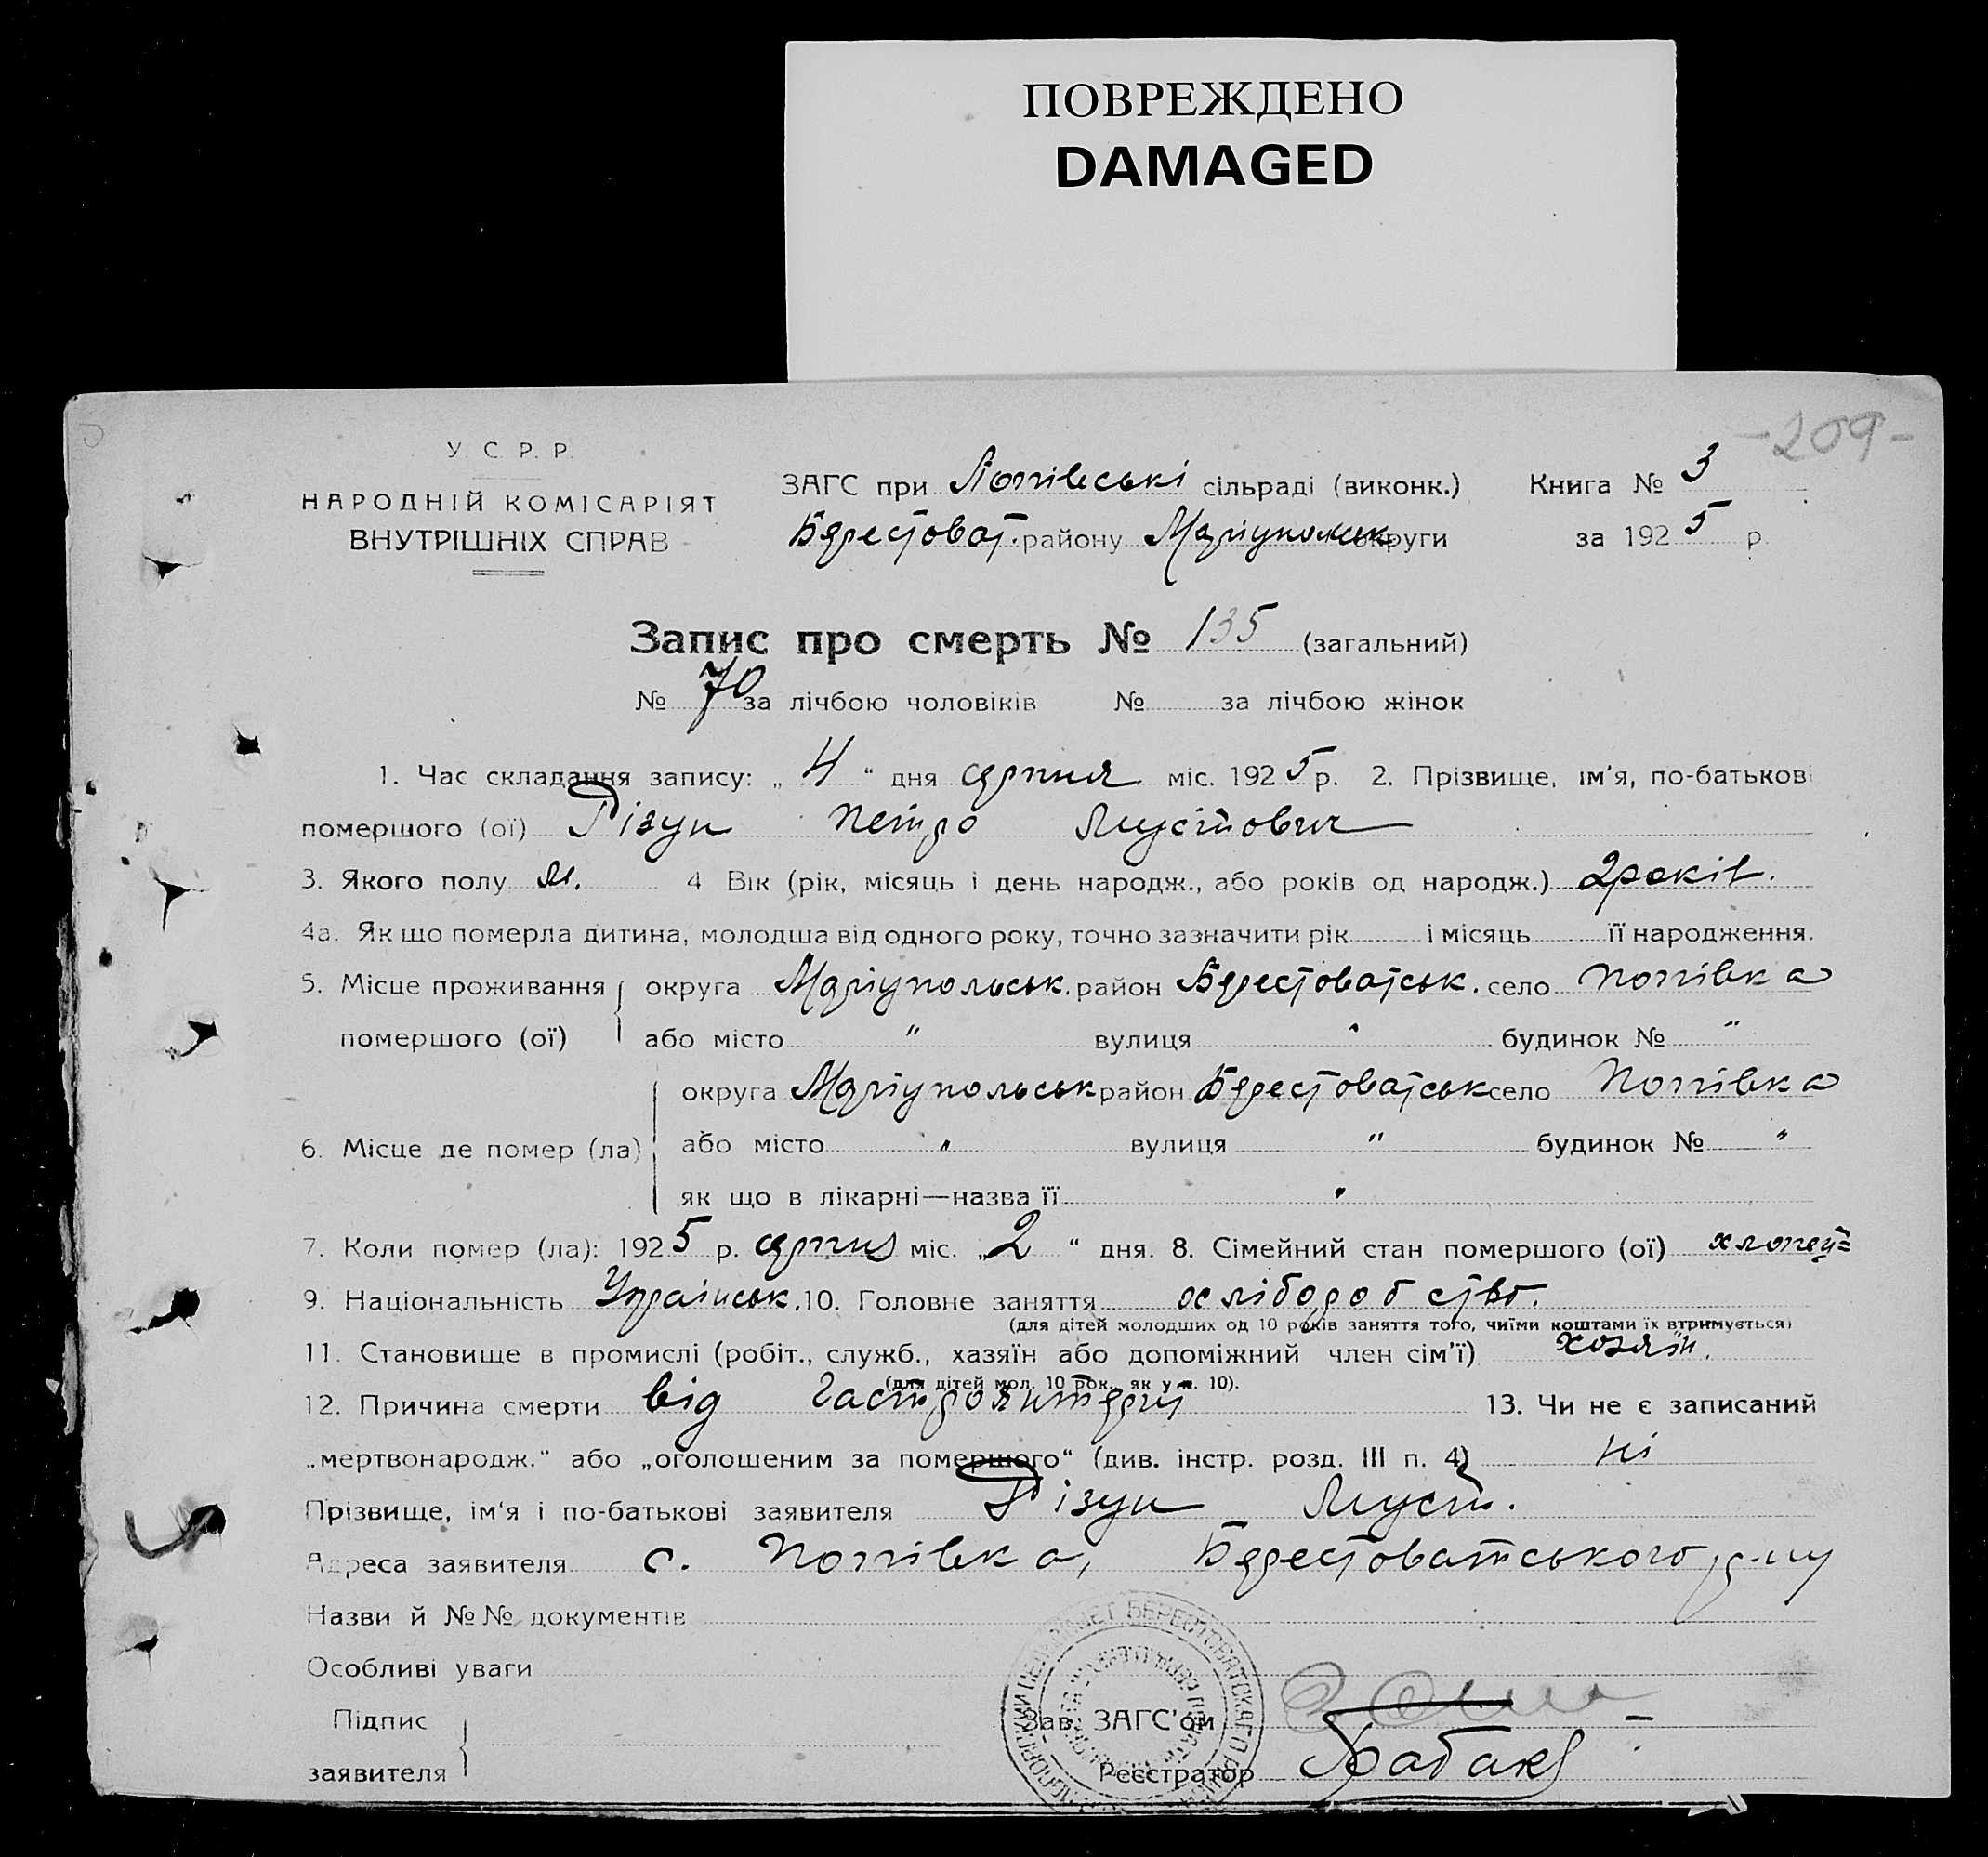 ПОВРЕЖДЕНО
DAMAGED
-209-
У. С. Р. Р.
НАРОДНІЙ КОМІСАРІЯТ
ВНУТРІШНІХ СПРАВ
ЗАГС при Попівські сільраді (виконк.) Книга № 3
Берестоват. району Маріупольськ округи за 1925 р.
Запис про смерть № 135 (загальний)
№ 70 за лічбою чоловіків № за лічбою жінок
1. Час складання запису: „4“ дня серпня міс. 1925 р. 2. Прізвище, ім'я, по-батькові
помершого (ої) Різун Петро
3. Якого полу м. 4 Вік (рік, місяць і день народж., або років од народж.) 2 років.
4а. Як що померла дитина, молодша від одного року, точно зазначити рік і місяць її народження.
5. Місце проживання округа Маріупольськ. район Берестоватськ. село Попівка
помершого (ої) або місто " вулиця " будинок № "
округа Маріупольськ район Берестоватськ село Попівка
6. Місце де помер (ла) або місто " вулиця " будинок № "
як що в лікарні—назва її "
7. Коли помер (ла): 1925 р. серпня міс. „2“ дня. 8. Сімейний стан помершого (ої) хлопец=
9. Національність Українськ. 10. Головне заняття хліборобство.
(для дітей молодших од 10 років заняття того, чиїми коштами їх втримується)
11. Становище в промислі (робіт., служб., хазяїн або допоміжний член сім'ї) хозяїн.
(для дітей мол. 10 рок., як у п. 10).
12. Причина смерти від 13. Чи не є записаний
„мертвонародж.“ або „оголошеним за помершого“ (див. інстр. розд. III п. 4) ні
Прізвище, ім'я і по-батькові заявителя Різун
Адреса заявителя с. Попівка, Берестоватського р-ну
Назви й №№ документів
Особливі уваги
Підпис
заявителя
Зав. ЗАГС'ом
Реєстратор